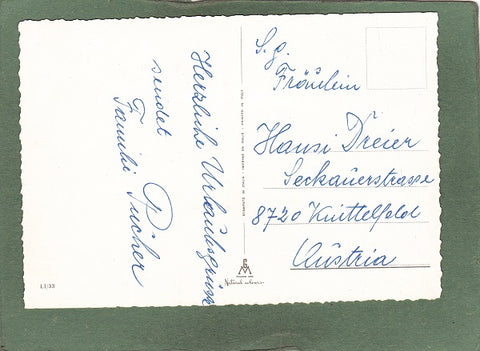 Herzliche Urlaubsgrüsse
sendet
Familie Pucher
S. g.
Fräulein
Hansi Dreier
Seckauerstrasse
8720 Knittelfeld
Austria
LI/33